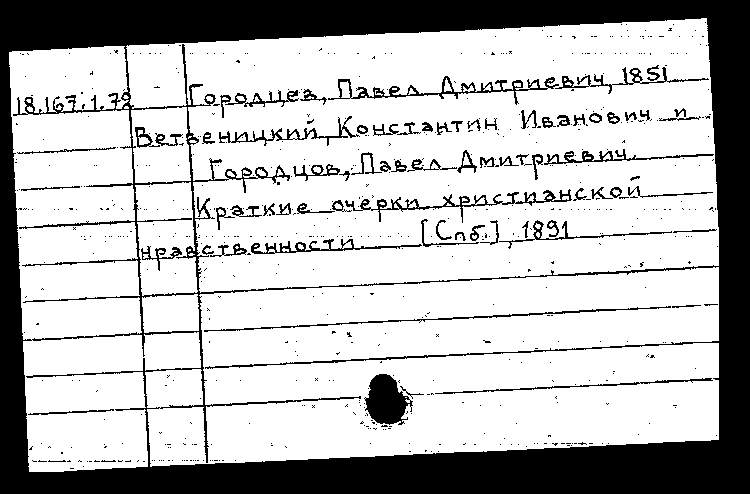 18.167.1.72 Городцев, Павел Дмитриевич, 1851
Ветвеницкий, Константин Иванович и
Городцов, Павел Дмитриевич.
Краткие очерки христианской
нравственности [Спб.], 1891